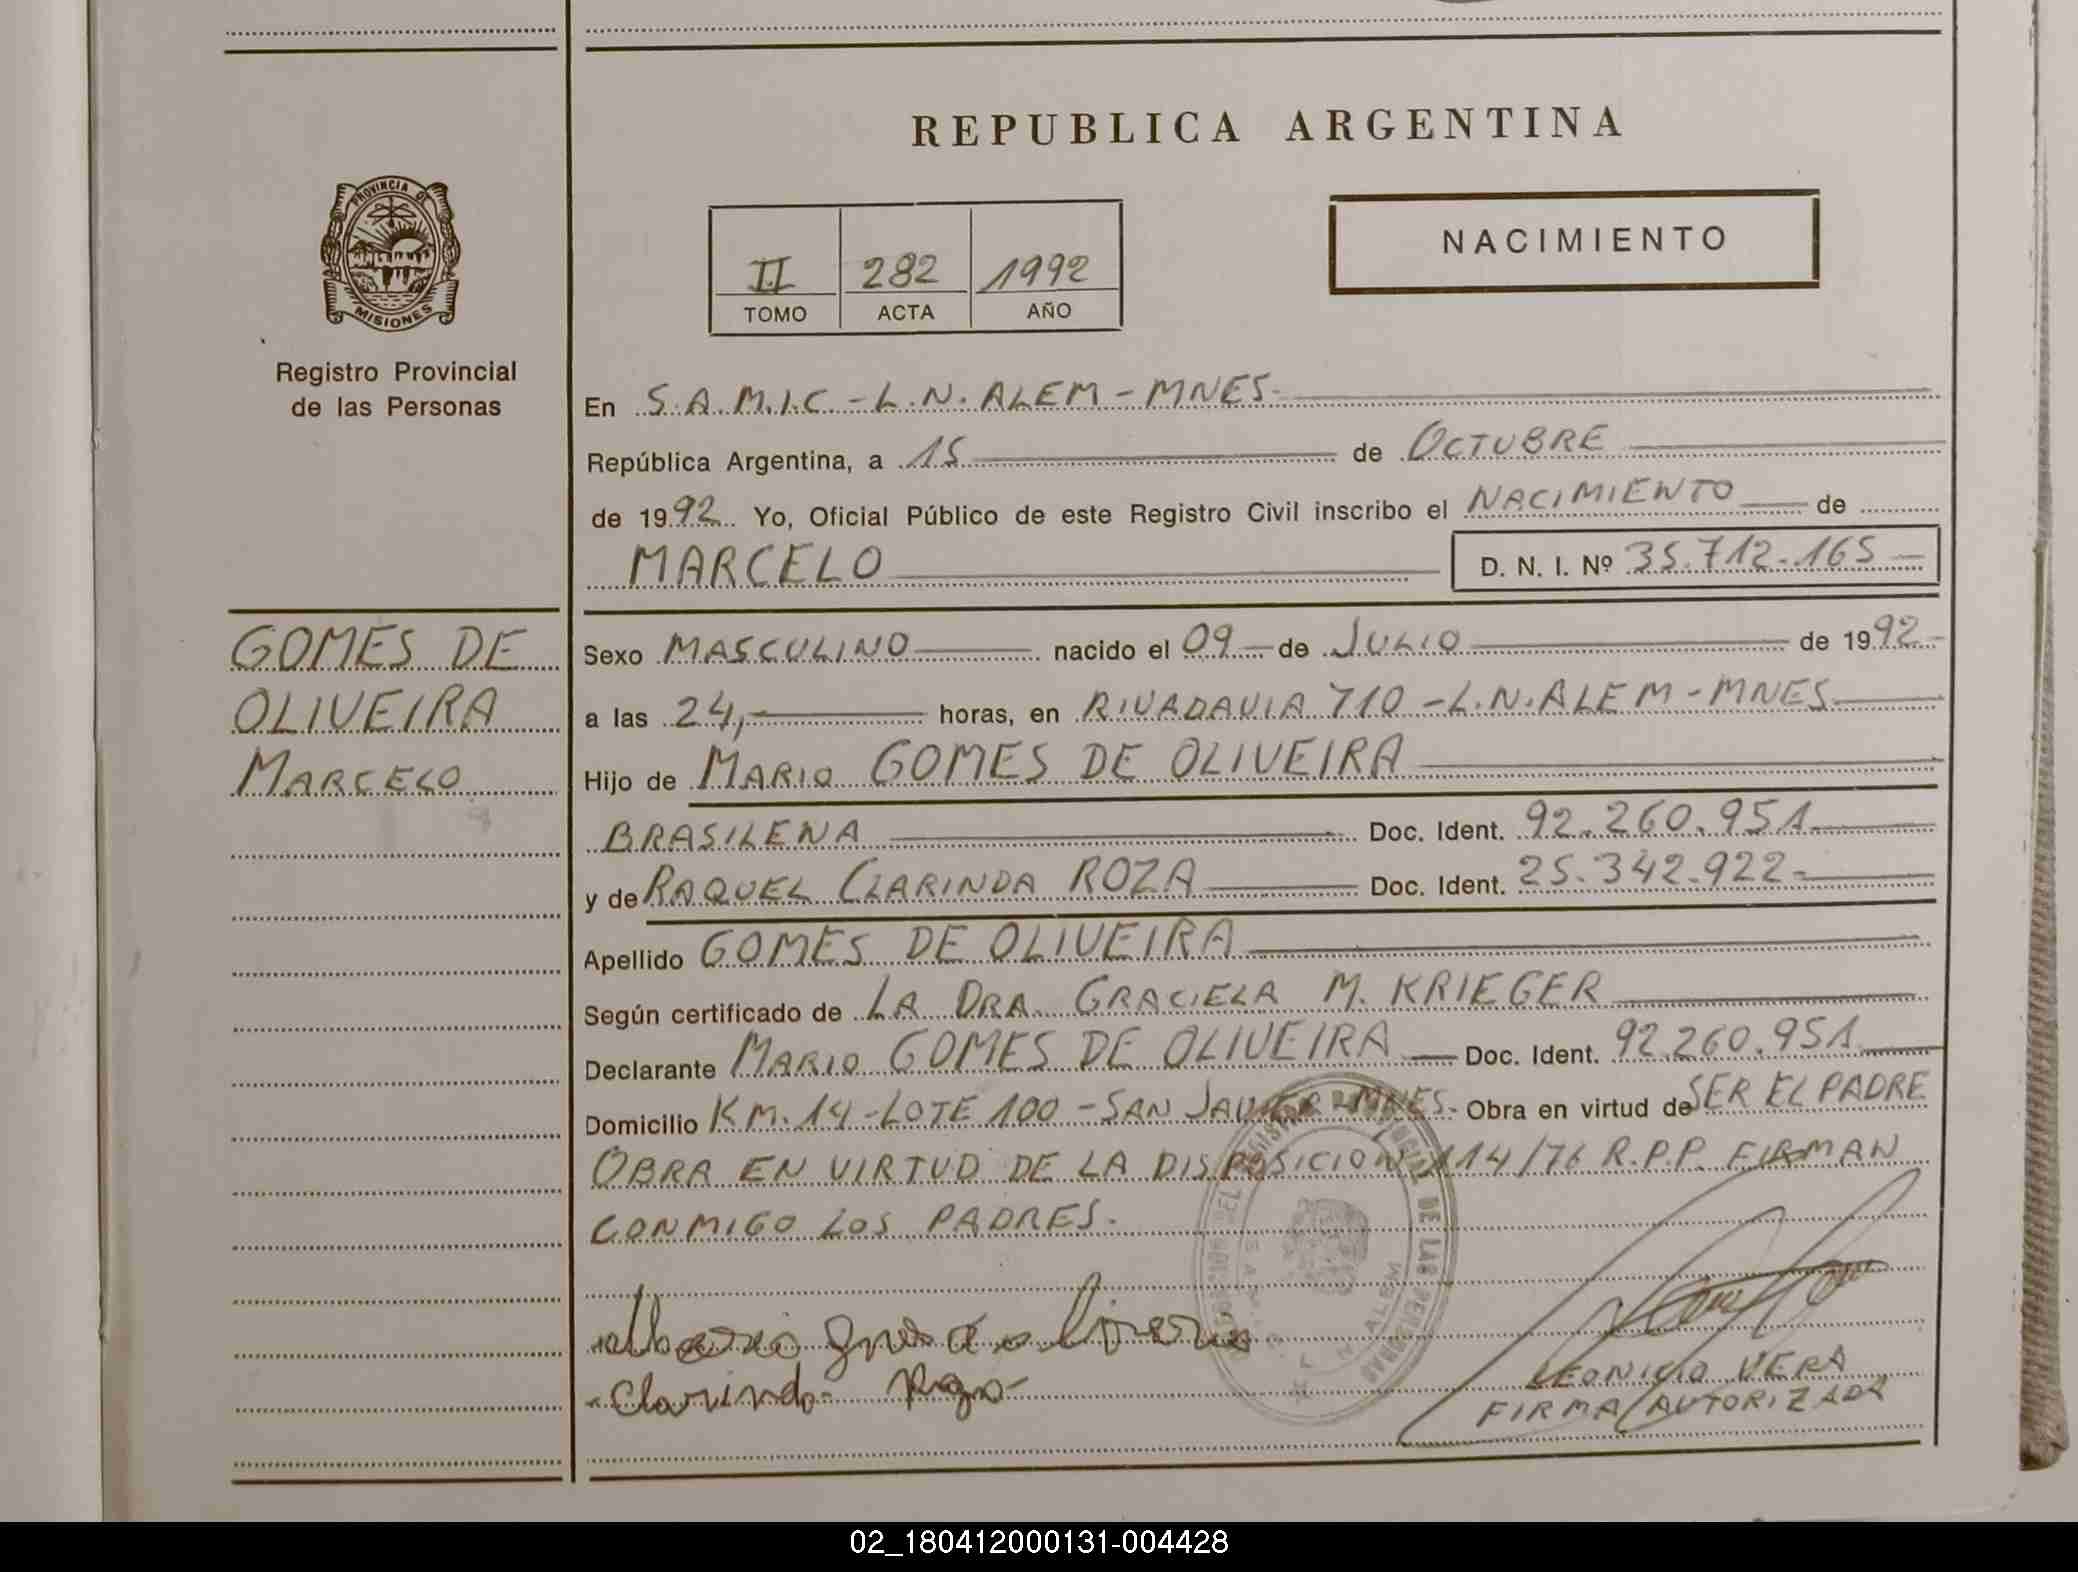 REPUBLICA ARGENTINA
PROVINCIA DE
MISIONES
Registro Provincial
de las Personas
NACIMIENTO
II 282 1992
TOMO ACTA AÑO
En S.A.M.I.C.-L.N.ALEM-MNES-
República Argentina, a 15 de OCTUBRE
de 1992 Yo, Oficial Público de este Registro Civil inscribo el NACIMIENTO de
MARCELO D. N. I. Nº 35.712.165
GOMES DE
OLIVEIRA
MARCELO
Sexo MASCULINO nacido el 09 de JULIO de 1992-
a las 24,- horas, en RIVADAVIA 710-L.N.ALEM-MNES
Hijo de MARIO GOMES DE OLIVEIRA
BRASILENA Doc. Ident. 92.260.951
y de RAQUEL CLARINDA ROZA Doc. Ident. 25.342.922-
Apellido GOMES DE OLIVEIRA
Según certificado de LA DRA. GRACIELA M. KRIEGER
Declarante MARIO GOMES DE OLIVEIRA Doc. Ident. 92.260.951
Domicilio KM.14-LOTE 100-SAN JAVIER-MNES- Obra en virtud de SER EL PADRE
OBRA EN VIRTUD DE LA DISPOSICION 114/76 R.P.P. FIRMAN
CONMIGO LOS PADRES.
DE LAS PERSONAS
ALEM
Clarinda
LEONICIO VERA
FIRMA AUTORIZADA
02_180412000131-004428